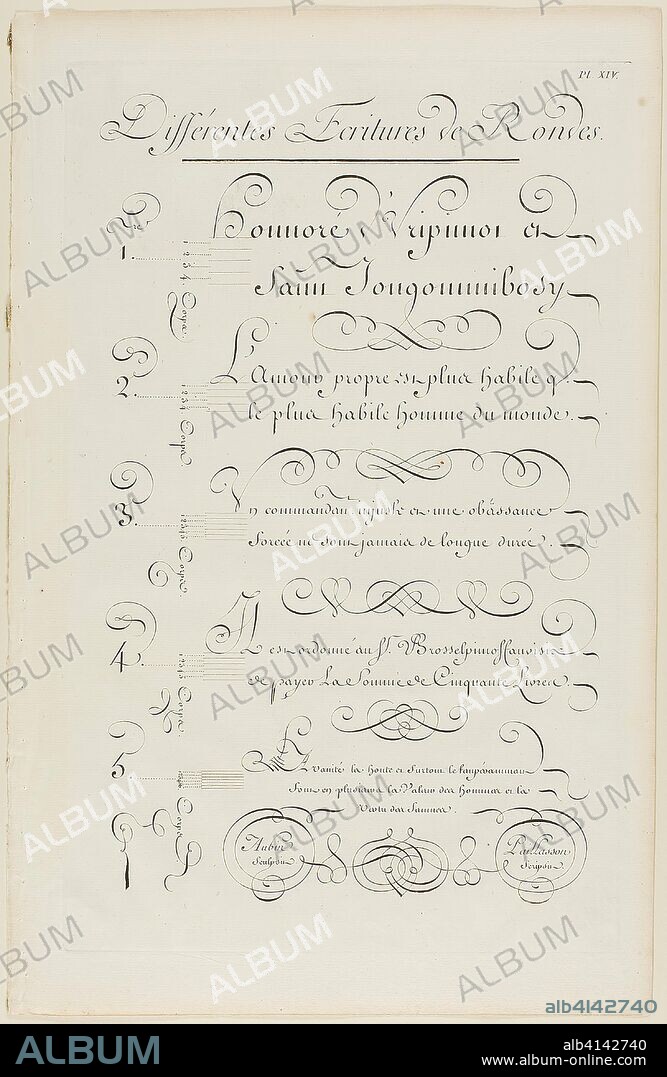 Pl. XIV.
Différentes Ecritures de Rondes.
1.
1 2 3 4 Corps.
Honnoré Vripinnoi et
Saint Jongonninbosy
2.
1 2 3 4 Corps.
L'Amour propre est plus habile q.
le plus habile homme du monde.
3.
Corps.
Un commandant injuste et une obéissance
forcée ne sont jamais de longue durée.
4.
1 2 3 4 5 Corps.
Il est ordonné au Sr.
de payer La Somme de Cinquante Livres.
5.
Corps.
La Vanité la honte et surtout le tempérament
font en plusieurs la Valeur des hommes et la
Vertu des femmes
Aubin
Sculpsit
Paillasson
Scripsit.
ALBUM
alb4142740
ALBUM
alb4142740
www.album-online.com